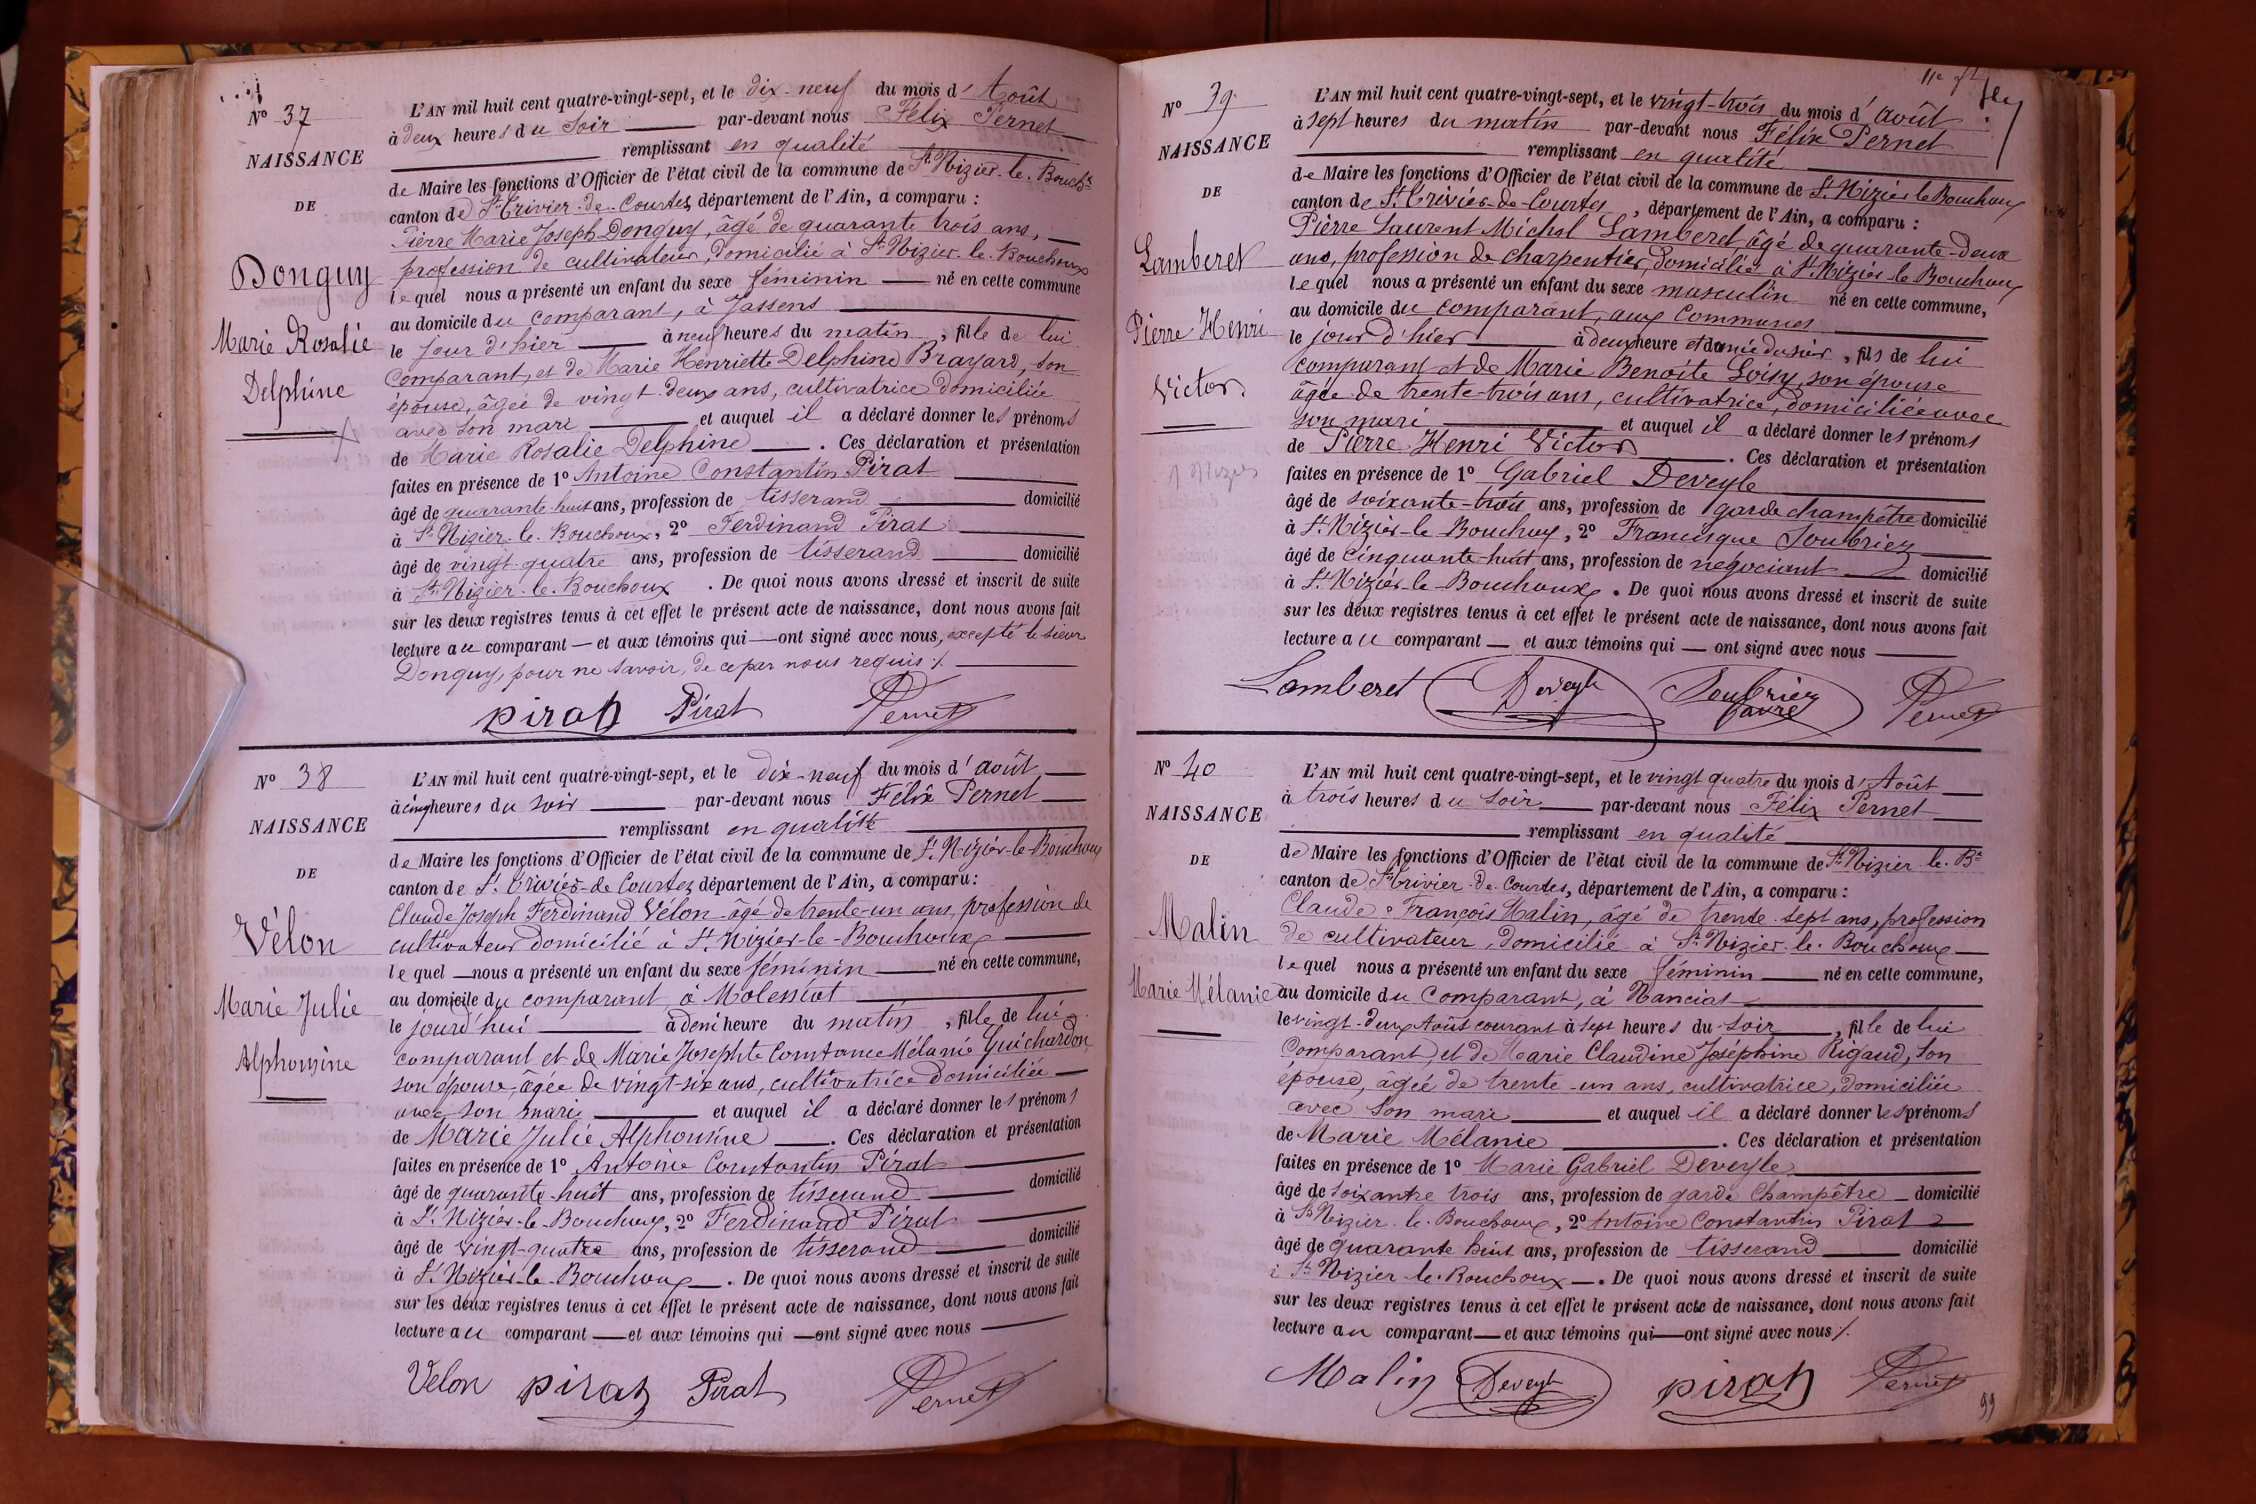 N° 37
NAISSANCE
DE
Donguy
Marie Rosalie
Delphine
L'AN mil huit cent quatre-vingt-sept, et le dix-neuf du mois d'Août
à deux heures du soir par-devant nous Félix Pernet
remplissant en qualité
de Maire les fonctions d'Officier de l'état civil de la commune de St Nizier-le-Bouchx
canton de St Trivier-de-Courtes, département de l'Ain, a comparu :
Pierre Marie Joseph Donguy, âgé de quarante trois ans,
profession de cultivateur, domicilié à St Nizier-le-Bouchoux
lequel nous a présenté un enfant du sexe féminin né en cette commune
au domicile du comparant, à Jassens
le jour d'hier à neuf heures du matin, fille de lui
comparant, et de Marie Henriette Delphine Brayard, son
épouse, âgée de vingt-deux ans, cultivatrice domiciliée
avec son mari et auquel il a déclaré donner les prénoms
de Marie Rosalie Delphine. Ces déclaration et présentation
faites en présence de 1° Antoine Constantin Pirat
âgé de quarante-huit ans, profession de tisserand domicilié
à St Nizier-le-Bouchoux, 2° Ferdinand Pirat
âgé de vingt-quatre ans, profession de tisserand domicilié
à St Nizier-le-Bouchoux. De quoi nous avons dressé et inscrit de suite
sur les deux registres tenus à cet effet le présent acte de naissance, dont nous avons fait
lecture au comparant — et aux témoins qui — ont signé avec nous, excepté le sieur
Donguy, pour ne savoir, de ce par nous requis ./.
Pirat Pirat Pernet
N° 38
NAISSANCE
DE
Vélon
Marie Julie
Alphonsine
L'AN mil huit cent quatre-vingt-sept, et le dix-neuf du mois d'août
à cinq heures du soir par-devant nous Félix Pernet
remplissant en qualité
de Maire les fonctions d'Officier de l'état civil de la commune de St Nizier-le-Bouchoux
canton de St Trivier-de-Courtes département de l'Ain, a comparu :
Claude Joseph Ferdinand Vélon âgé de trente-un ans, profession de
cultivateur domicilié à St Nizier-le-Bouchoux
lequel — nous a présenté un enfant du sexe féminin né en cette commune,
au domicile du comparant, à Molessiat
le jourd'hui à demi heure du matin, fille de lui
comparant et de Marie Josephte Constance Mélanie Guichardon
son épouse, âgée de vingt-six ans, cultivatrice domiciliée
avec son mari et auquel il a déclaré donner les prénoms
de Marie Julie Alphonsine. Ces déclaration et présentation
faites en présence de 1° Antoine Constantin Pirat
âgé de quarante-huit ans, profession de tisserand domicilié
à St Nizier-le-Bouchoux, 2° Ferdinand Pirat
âgé de vingt-quatre ans, profession de tisserand domicilié
à St Nizier-le-Bouchoux. De quoi nous avons dressé et inscrit de suite
sur les deux registres tenus à cet effet le présent acte de naissance, dont nous avons fait
lecture au comparant — et aux témoins qui — ont signé avec nous
Velon Pirat Pirat Pernet
N° 39
NAISSANCE
DE
Lamberet
Pierre Henri
Victor
L'AN mil huit cent quatre-vingt-sept, et le vingt-trois du mois d'août
à sept heures du matin par-devant nous Félix Pernet
remplissant en qualité
de Maire les fonctions d'Officier de l'état civil de la commune de St Nizier le Bouchoux
canton de St Trivier-de-Courtes, département de l'Ain, a comparu :
Pierre Laurent Michel Lamberet, âgé de quarante-deux
ans, profession de charpentier, domicilié à St Nizier-le-Bouchoux
lequel nous a présenté un enfant du sexe masculin né en cette commune,
au domicile du comparant, aux Communes
le jour d'hier à deux heure et demie du soir, fils de lui
comparant et de Marie Benoite Loisy, son épouse
âgée de trente-trois ans, cultivatrice, domiciliée avec
son mari et auquel il a déclaré donner les prénoms
de Pierre Henri Victor. Ces déclaration et présentation
faites en présence de 1° Gabriel Deveyle
âgé de soixante-trois ans, profession de garde champêtre domicilié
à St Nizier-le Bouchoux, 2° Francisque Soubriez
âgé de cinquante-huit ans, profession de négociant domicilié
à St Nizier-le-Bouchoux. De quoi nous avons dressé et inscrit de suite
sur les deux registres tenus à cet effet le présent acte de naissance, dont nous avons fait
lecture au comparant — et aux témoins qui — ont signé avec nous
Lamberet Deveyle Soubriez Favre Pernet
N° 40
NAISSANCE
DE
Malin
Marie Mélanie
L'AN mil huit cent quatre-vingt-sept, et le vingt quatre du mois d'Août
à trois heures du soir par-devant nous Félix Pernet
remplissant en qualité
de Maire les fonctions d'Officier de l'état civil de la commune de St Nizier-le-Bx
canton de St Trivier-de-Courtes, département de l'Ain, a comparu :
Claude François Malin, âgé de trente-sept ans, profession
de cultivateur, domicilié à St Nizier-le-Bouchoux
lequel nous a présenté un enfant du sexe féminin né en cette commune,
au domicile du comparant, à Nanciat
le vingt-deux Août courant à sept heures du soir, fille de lui
comparant, et de Marie Claudine Joséphine Rigaud, son
épouse, âgée de trente-un ans, cultivatrice, domiciliée
avec son mari et auquel il a déclaré donner les prénoms
de Marie Mélanie. Ces déclaration et présentation
faites en présence de 1° Marie Gabriel Deveyle
âgé de soixantre trois ans, profession de garde Champêtre domicilié
à St Nizier-le-Bouchoux, 2° Antoine Constantin Pirat
âgé de quarante huit ans, profession de tisserand domicilié
à St Nizier-le-Bouchoux. De quoi nous avons dressé et inscrit de suite
sur les deux registres tenus à cet effet le présent acte de naissance, dont nous avons fait
lecture au comparant — et aux témoins qui — ont signé avec nous ./.
Malin Deveyle Pirat Pernet
99